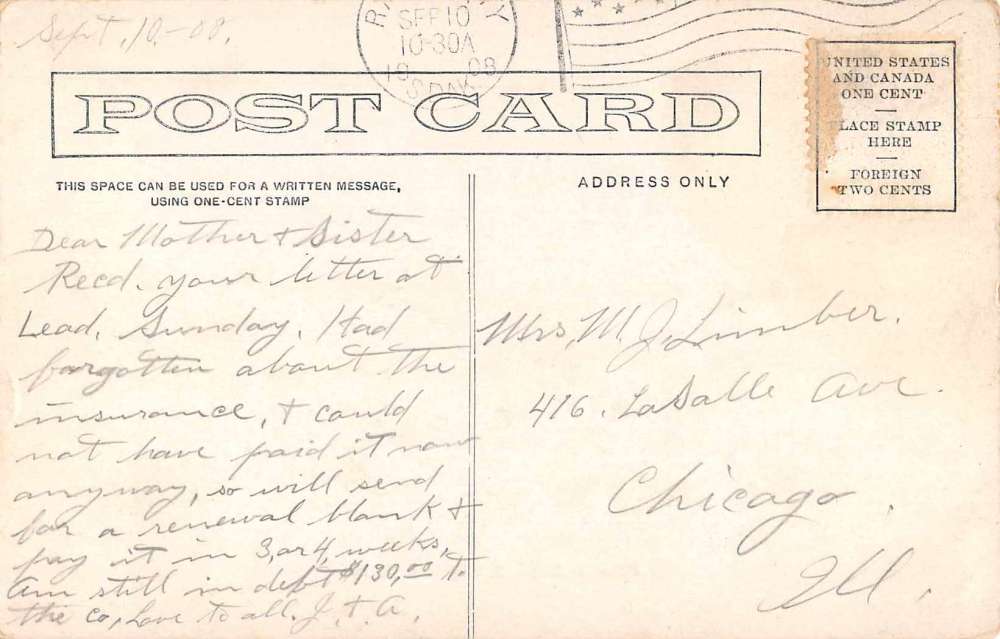 Sept. 10.-08.
SEP 10
10-30A
1908
S.DAK.
UNITED STATES
AND CANADA
ONE CENT
PLACE STAMP
HERE
FOREIGN
TWO CENTS
POST CARD
THIS SPACE CAN BE USED FOR A WRITTEN MESSAGE,
USING ONE-CENT STAMP
ADDRESS ONLY
Dear Mother & Sister
Recd. your letter at
Lead, Sunday. Had
forgotten about the
insurance, & could
not have paid it now
anyway, so will send
for a renewal blank &
pay it in 3, or 4, weeks,
Am still in debt $130,00 to
the Co, Love to all. J. & A.
Mrs, M. J. Limber.
416. LaSalle Ave.
Chicago.
Ill.